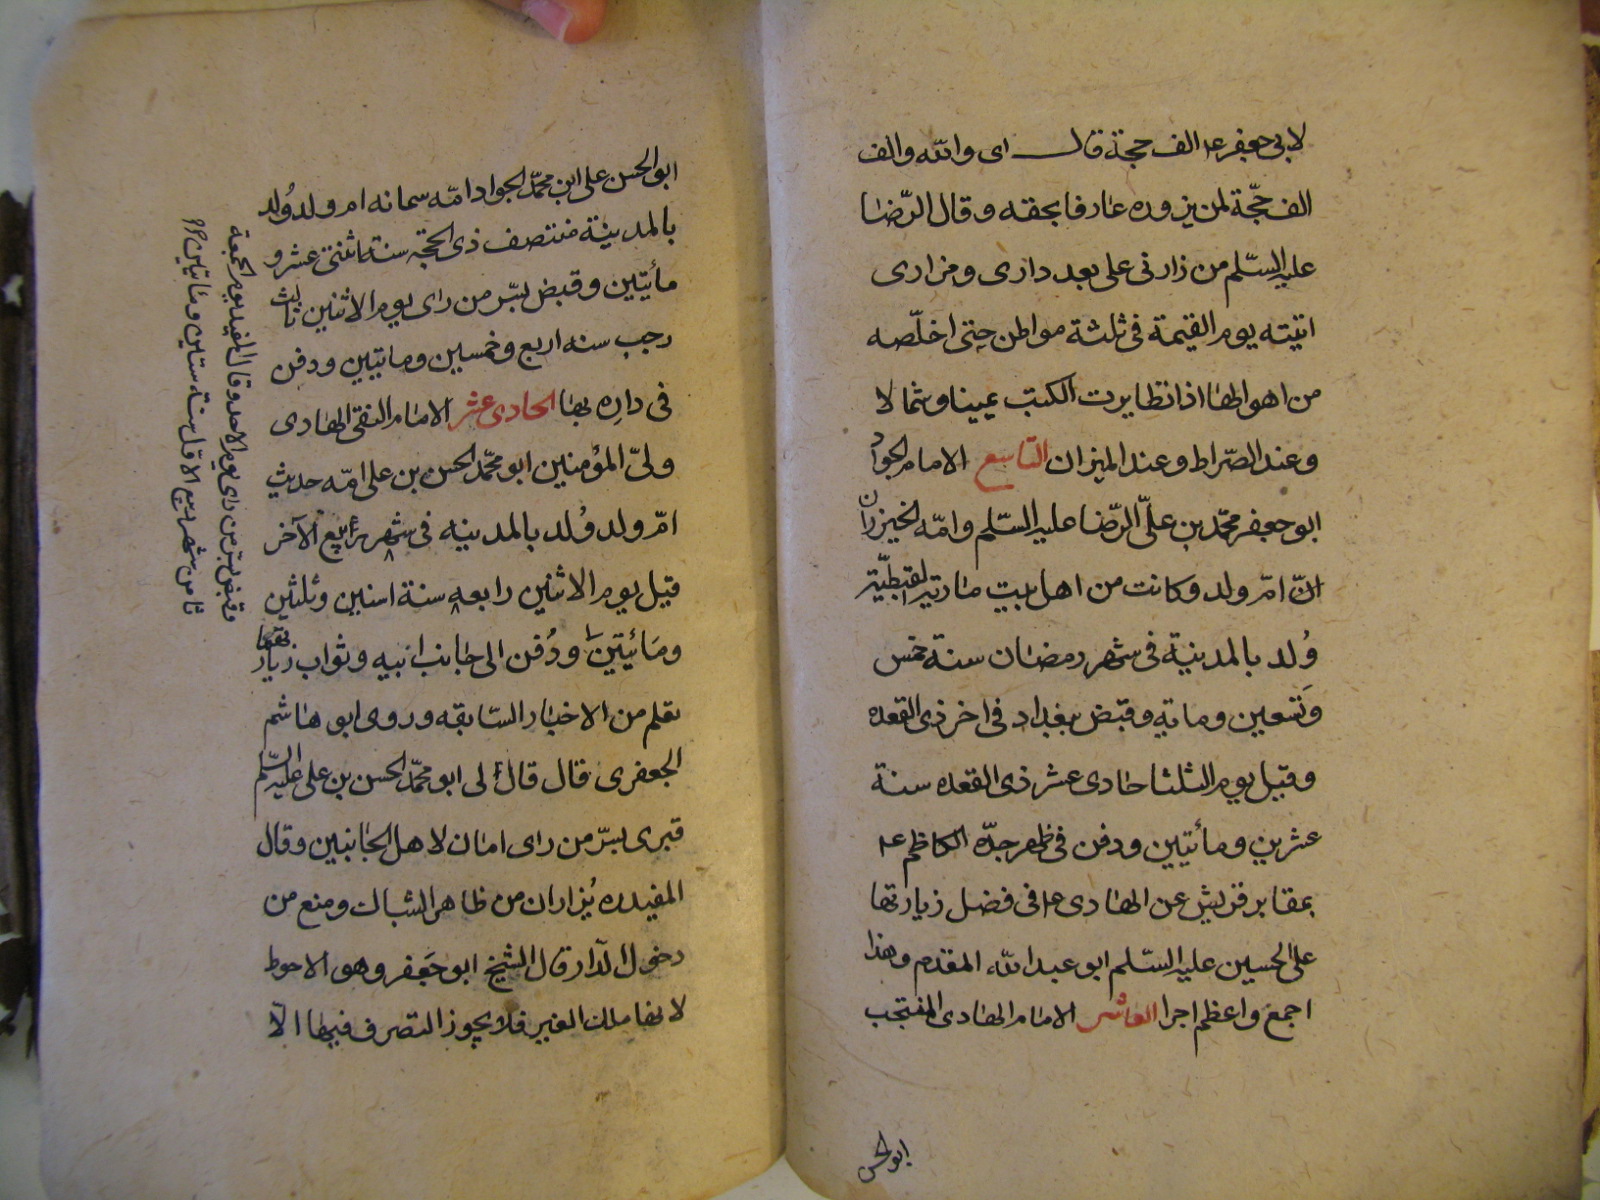 لابی جعفر ع الف حجة قال ای والله والف
الف حجّة لمن یزوره عارفا بحقه وقال الرّضا
علیه السّلم من زارنی علی بعد داری ومزاری
اتیته یوم القیمة فی ثلثة مواطن حتی اخلّصه
من اهوالها اذا تطایرت الکتب یمینا وشمالا
وعند الصّراط وعند المیزان التاسع الامام الجواد
ابو جعفر محمّد بن علیّ الرّضا علیه السّلم وامّه الخیزران
امّ ولد وکانت من اهل بیت ماریة القبطیّة
وُلد بالمدینة فی شهر رمضان سنة خمس
وَتسعین ومایه وقبض ببغداد فی اخر ذی القعده
وقیل یوم الثلثا حادی عشر ذی القعده سنة
عشرین ومأتیین ودفن فی ظهر جدّه الکاظم ع
بمقابر قریش عن الهادی ع فی فضل زیارتها
علی الحسین علیه السّلم ابو عبد الله المقدم وهذا
اجمع واعظم اجرا العاشر الامام الهادی المنتجب
ابو الحسن
ابو الحسن علی ابن محمّد الجواد امّه سمانه ام ولد وُلد
بالمدینة منتصف ذی الحجّة سنة اثنتی عشر و
مأیتین وقبض بسّر من رای یوم الاثنین ثالث
رجب سنه اربع وخمسین وماتیین ودفن
فی داره بها الحادی عشر الامام النقی الهادی
ولیّ المؤمنین ابو محمّد الحسن بن علی امّه حدیث
امّ ولد وُلد بالمدینه فی شهر ربیع الآخر
قیل یوم الاثنین رابعه سنة اسنین وثلثین
ومَائیتین ودُفن الی جانب ابیه وثواب زیارتهما
تعلم من الاخبار السّابقه وروی ابو هاشم
الجعفری قال قال لی ابو محمّد الحسن بن علی علیه السّلم
قبری بسّر من رای امان لاهل الجانبین وقال
المفیدره یُزاران من ظاهر الشباك ومنع من
دخول الدّار قال الشیخ ابو جَعفر وهو الاحوط
لانها ملك الغیر فلا یجوز التصرف فیها الّا
وقبض بسّر من رای یوم الاحد وقال المفید یوم الجمعة
ثامن شهر ربیع الاوّل سنة ستین ومأیتین